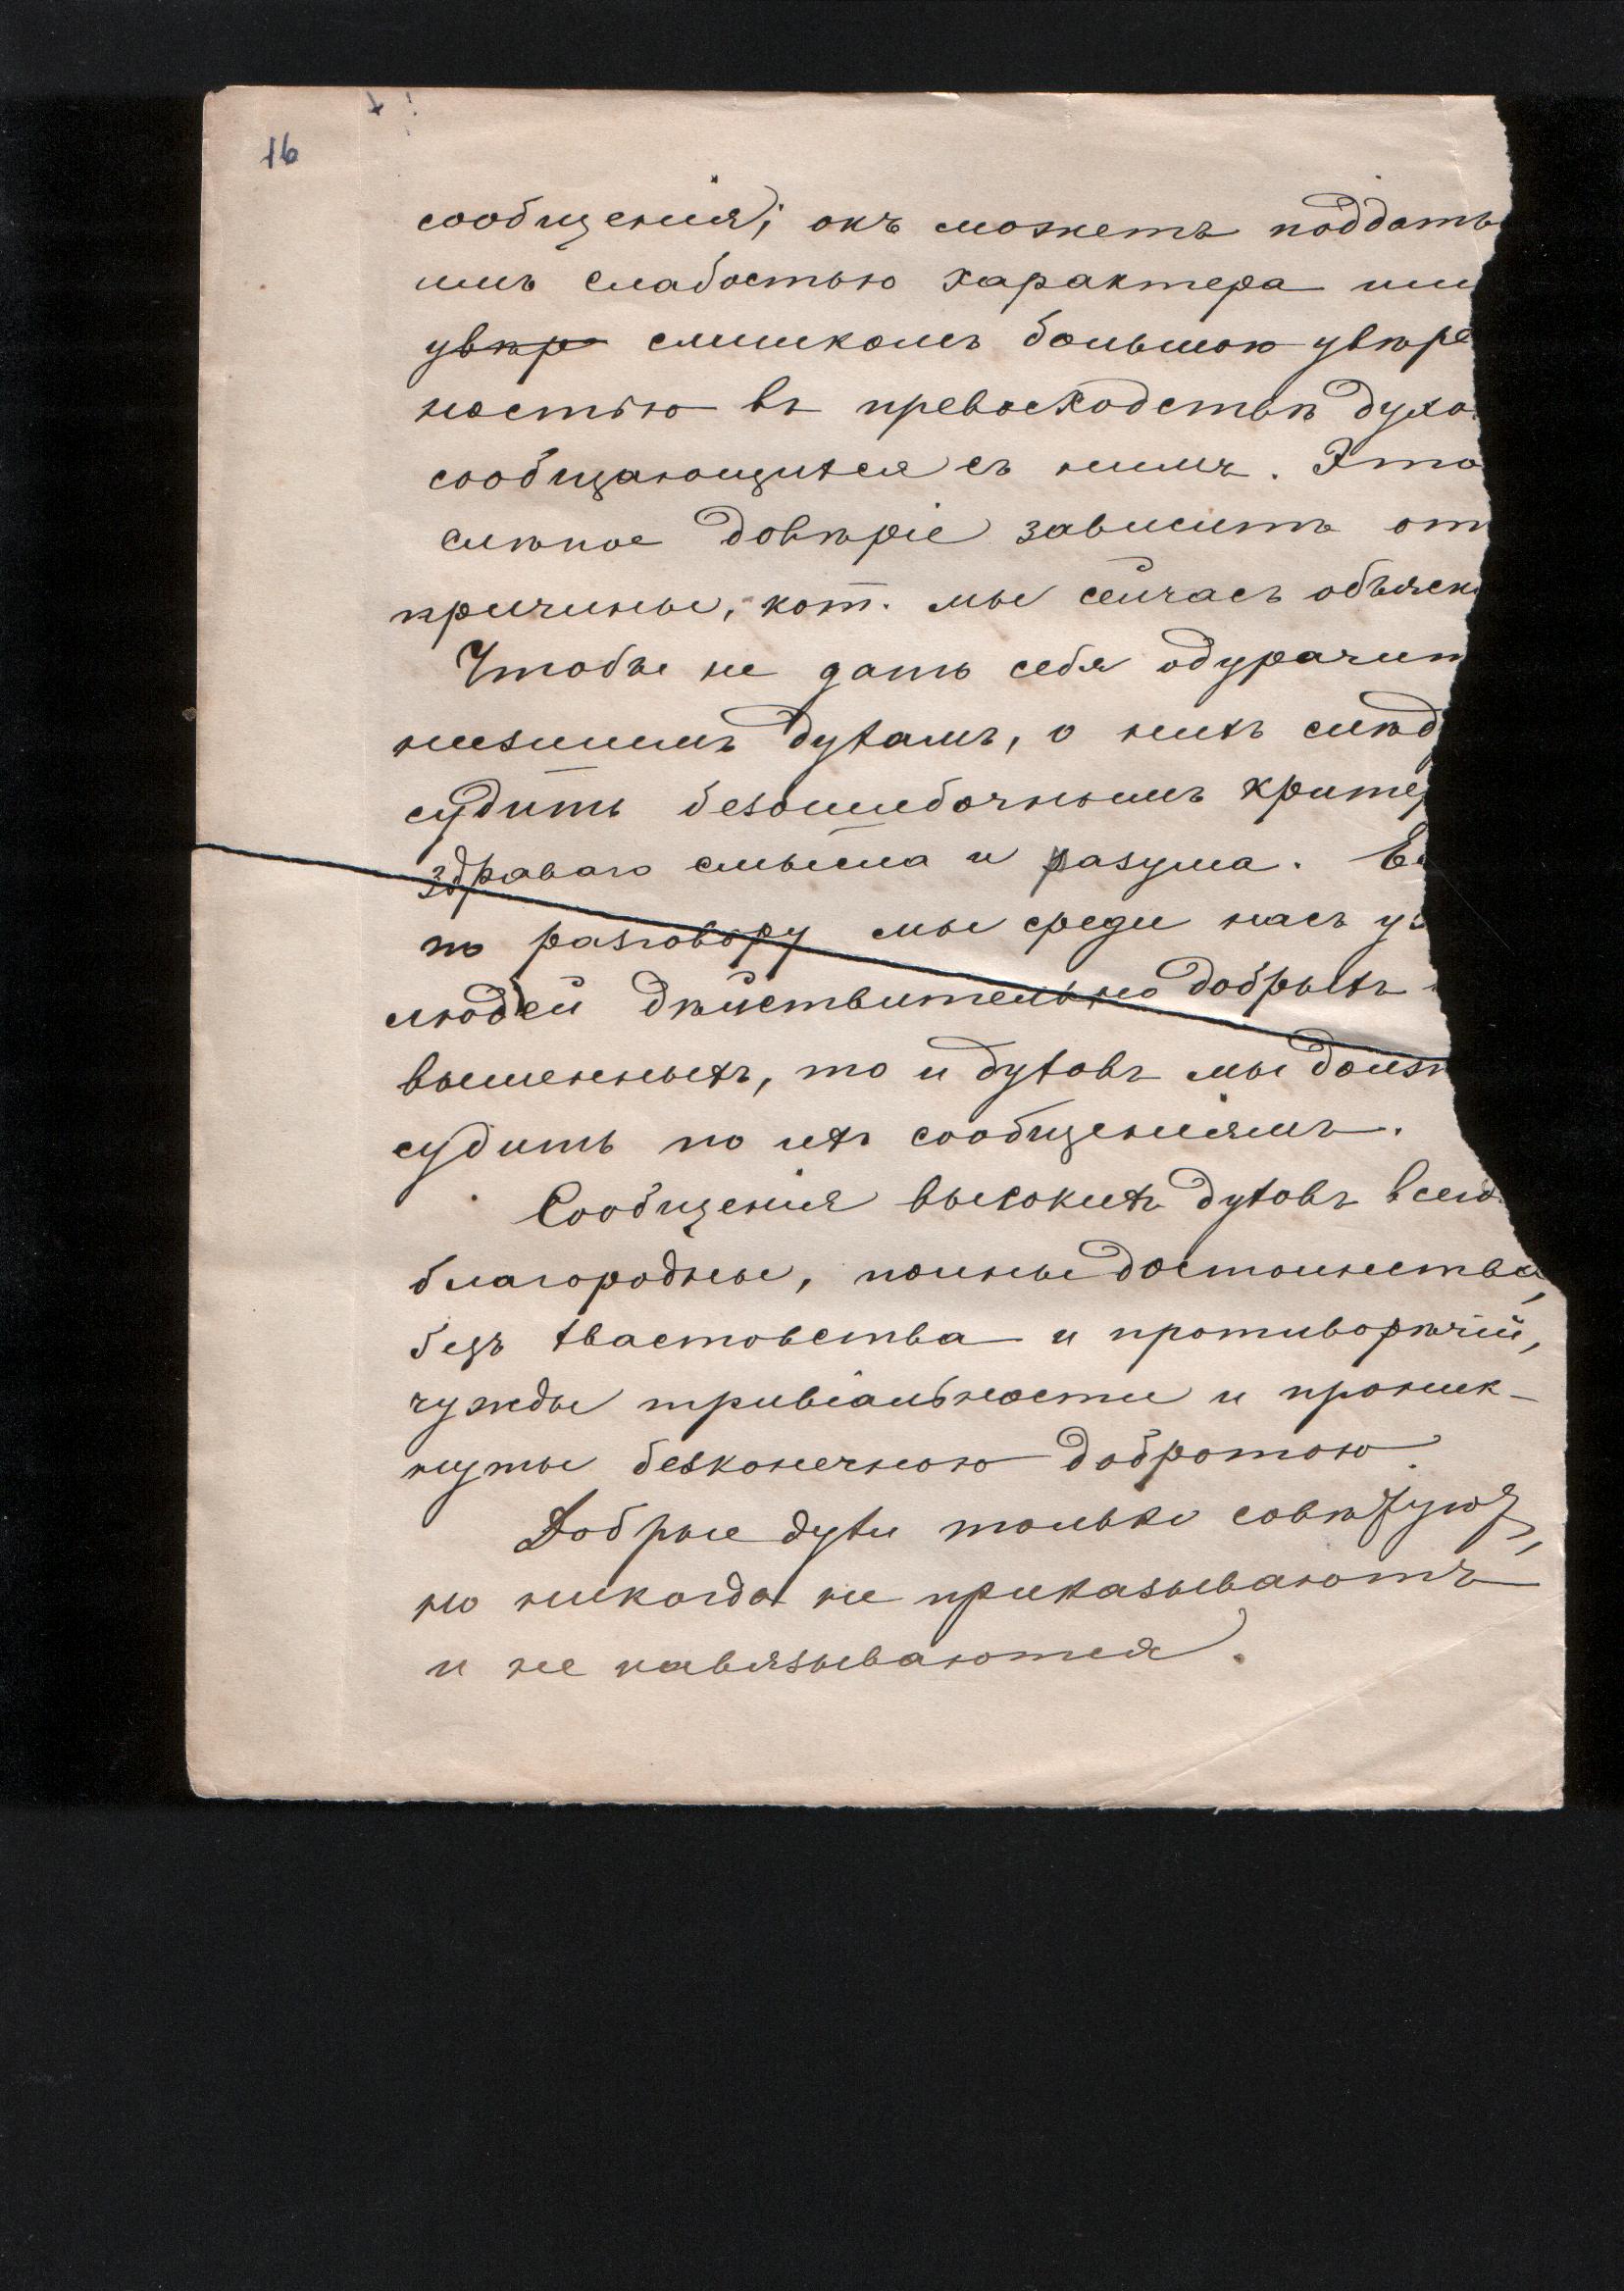 16
сообщенія; онъ можетъ поддать
имъ слабостью характера или
увѣр слишкомъ большою увѣре
ностью въ превосходствѣ духо
сообщающихся съ нимъ. Это
слѣпое довѣріе зависитъ от
причины, кот. мы сейчасъ объясн
Чтобы не дать себя одурачит
низшимъ духамъ, о нихъ слѣд
судить безошибочнымъ критер
здраваго смысла и разума. Ес
по разговору мы среди насъ уз
людей дѣйствительно добрыхъ
вышенныхъ, то и духовъ мы должн
судить по ихъ сообщеніямъ.
Сообщенія высокихъ духовъ всегд
благородны, полны достоинства,
безъ хвастовства и противорѣчій,
чужды тривіальности и проник-
нуты безконечною добротою.
Добрые духи только совѣтуютъ,
но никогда не приказываютъ
и не навязываются.